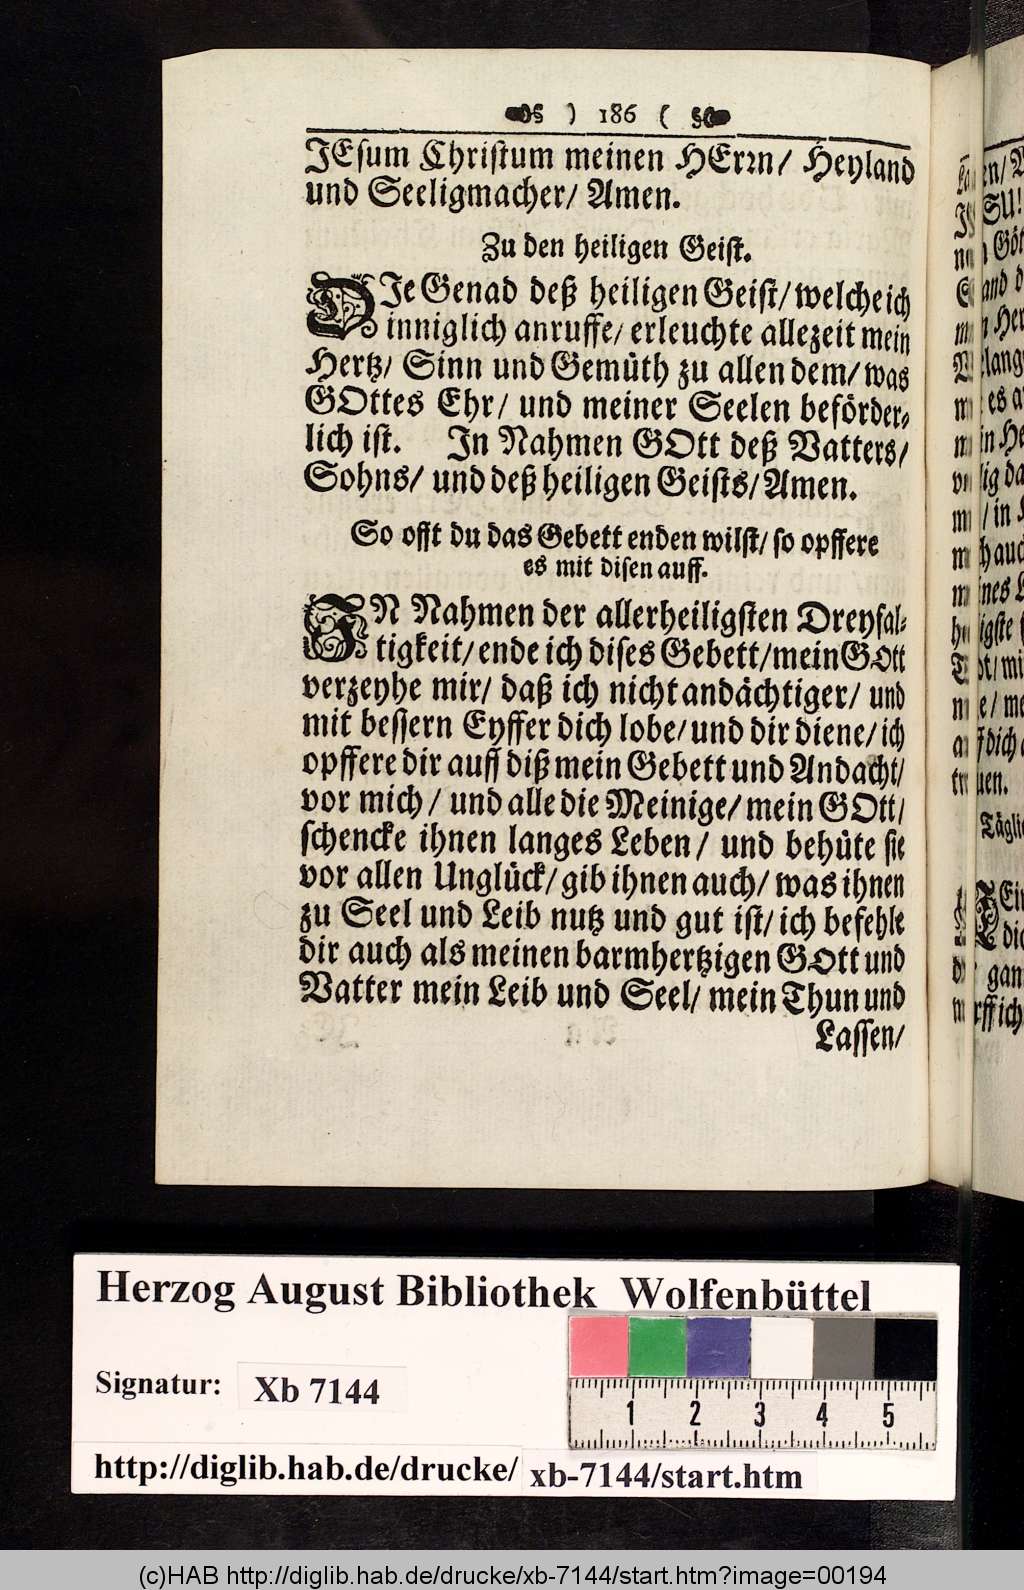 ) 186 (
JEsum Christum meinen HErrn/ Heyland
und Seeligmacher/ Amen.
Zu den heiligen Geist.
DJe Genad deß heiligen Geist/ welche ich
inniglich anruffe/ erleuchte allezeit mein
Hertz/ Sinn und Gemüth zu allen dem/ was
GOttes Ehr/ und meiner Seelen beförder-
lich ist. Jn Nahmen GOtt deß Vatters/
Sohns/ und deß heiligen Geists/ Amen.
So offt du das Gebett enden wilst/ so opffere
es mit disen auff.
JN Nahmen der allerheiligsten Dreyfal-
tigkeit/ ende ich dises Gebett/ mein GOtt
verzeyhe mir/ daß ich nicht andächtiger/ und
mit bessern Eyffer dich lobe/ und dir diene/ ich
opffere dir auff diß mein Gebett und Andacht/
vor mich/ und alle die Meinige/ mein GOtt/
schencke ihnen langes Leben/ und behüte sie
vor allen Unglück/ gib ihnen auch/ was ihnen
zu Seel und Leib nutz und gut ist/ ich befehle
dir auch als meinen barmhertzigen GOtt und
Vatter mein Leib und Seel/ mein Thun und
Lassen/
Herzog August Bibliothek Wolfenbüttel
Signatur: Xb 7144
1 2 3 4 5
http://diglib.hab.de/drucke/ xb-7144/start.htm
(c)HAB http://diglib.hab.de/drucke/xb-7144/start.htm?image=00194